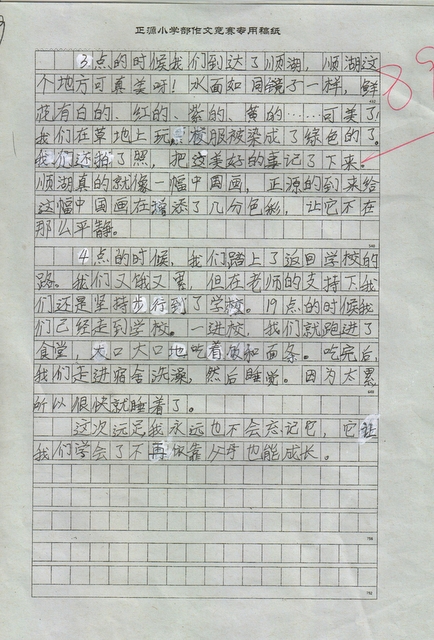 正源小学部作文竞赛专用稿纸
3点的时候我们到达了顺湖，顺湖这
个地方可真美呀！水面如同镜子一样，鲜
花有白的、红的、紫的、黄的……可美了！
我们在草地上玩，校服被染成了绿色的了。
我们还拍了照，把这美好的事记了下来。
顺湖真的就像一幅中国画，正源的到来给
这幅中国画在增添了几分色彩，让它不在
那么平静。
4点的时候，我们踏上了返回学校的
路。我们又饿又累，但在老师的支持下我
们还是坚持步行到了学校。19点的时候我
们已经走到学校。一进校，我们就跑进了
食堂，大口大口地吃着饭和面条。吃完后，
我们走进宿舍洗澡，然后睡觉。因为太累
所以很快就睡着了。
这次远足我永远也不会忘记它，它让
我们学会了不再依靠父母也能成长。
89